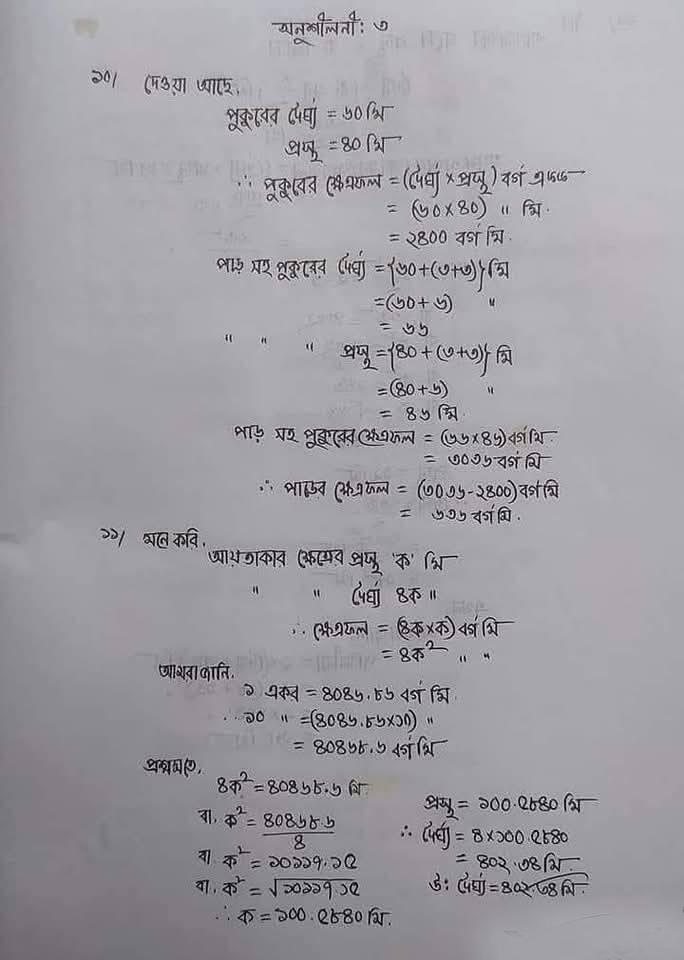 অনুশীলনী: ৩
১০/ দেওয়া আছে,
পুকুরের দৈর্ঘ্য = ৬০ মি
প্রস্থ = ৪০ মি
∴ পুকুরের ক্ষেত্রফল = (দৈর্ঘ্য × প্রস্থ) বর্গ একক
= (৬০ × ৪০) " মি.
= ২৪০০ বর্গ মি.
পাড় সহ পুকুরের দৈর্ঘ্য = {৬০+(৩+৩)} মি
= (৬০+৬) "
= ৬৬
" " " প্রস্থ = {৪০+(৩+৩)} মি
= (৪০+৬) "
= ৪৬ মি.
পাড় সহ পুকুরের ক্ষেত্রফল = (৬৬×৪৬) বর্গ মি.
= ৩০৩৬ বর্গ মি
∴ পাড়ের ক্ষেত্রফল = (৩০৩৬-২৪০০) বর্গ মি
= ৬৩৬ বর্গ মি.
১১/ মনে করি,
আয়তাকার ক্ষেত্রের প্রস্থ 'ক' মি
" " দৈর্ঘ্য ৪ক "
∴ ক্ষেত্রফল = (৪ক×ক) বর্গ মি
= ৪ক² " "
আমরা জানি,
১ একর = ৪০৪৬.৮৬ বর্গ মি.
∴ ১০ " = (৪০৪৬.৮৬×১০) "
= ৪০৪৬৮.৬ বর্গ মি
প্রশ্নমতে,
৪ক² = ৪০৪৬৮.৬ মি.
বা, ক² = ৪০৪৬৮.৬
৪
বা ক² = ১০১১৭.১৫
বা, ক² = √১০১১৭.১৫
∴ ক = ১০০.৫৮৪০ মি.
প্রস্থ = ১০০.৫৮৪০ মি
∴ দৈর্ঘ্য = ৪×১০০.৫৮৪০
= ৪০২.৩৪ মি.
উ: দৈর্ঘ্য = ৪০২.৩৪ মি.